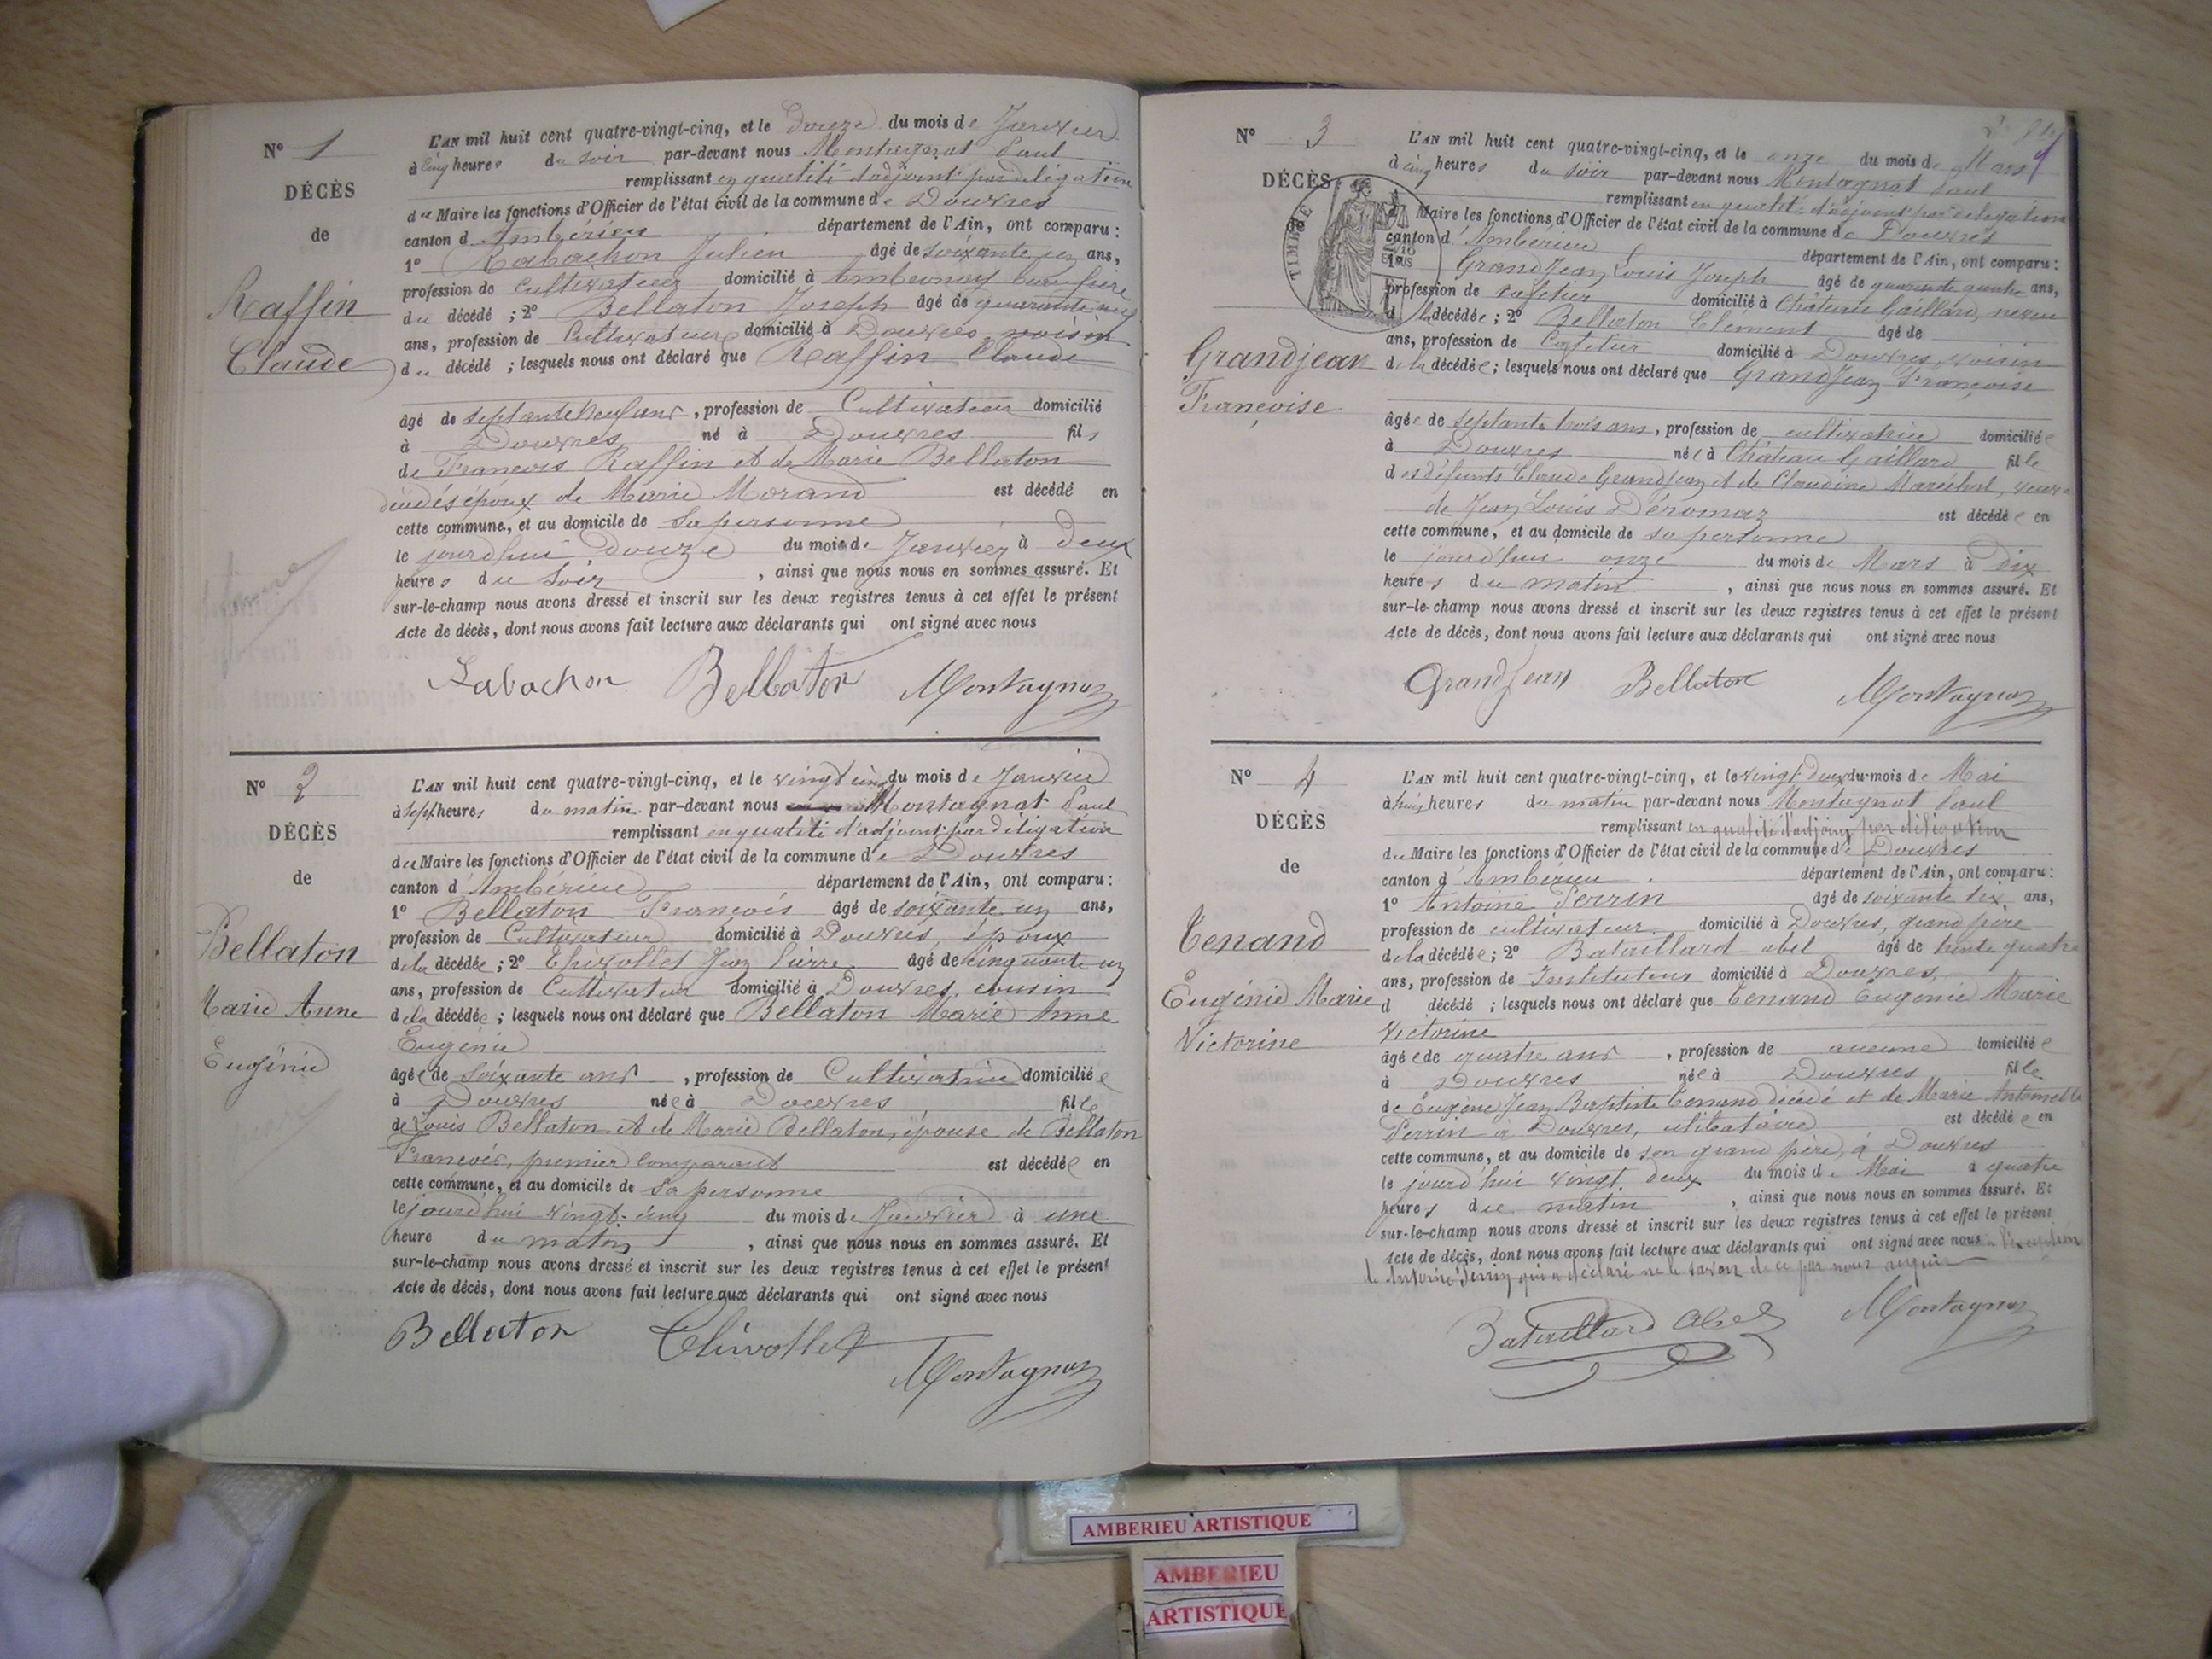 N° 1
DÉCÈS
de
Raffin
Claude
L'AN mil huit cent quatre-vingt-cinq, et le douze du mois de Janvier
à cinq heures du soir par-devant nous Montagnat Paul
remplissant en qualité d'adjoint par délégation
du Maire les fonctions d'Officier de l'état civil de la commune de Douvres
canton d'Ambérieu département de l'Ain, ont comparu :
1° Rabachon Julien âgé de soixante un ans,
profession de cultivateur domicilié à Ambronay beau frère
du décédé ; 2° Bellaton Joseph âgé de quarante neuf
ans, profession de Cultivateur domicilié à Douvres, voisin
du décédé ; lesquels nous ont déclaré que Raffin Claude
âgé de septante neuf ans, profession de Cultivateur domicilié
à Douvres né à Douvres fils
de François Raffin et de Marie Bellaton
décédés époux de Marie Morand est décédé en
cette commune, et au domicile de sa personne
le jourd'hui douze du mois de Janvier à deux
heures du soir, ainsi que nous nous en sommes assuré. Et
sur-le-champ nous avons dressé et inscrit sur les deux registres tenus à cet effet le présent
Acte de décès, dont nous avons fait lecture aux déclarants qui ont signé avec nous
Rabachon Bellaton Montagnat
N° 2
DÉCÈS
de
Bellaton
Marie Anne
Eugénie
L'AN mil huit cent quatre-vingt-cinq, et le vingt cinq du mois de Janvier
à sept heures du matin par-devant nous Montagnat Paul
remplissant en qualité d'adjoint par délégation
du Maire les fonctions d'Officier de l'état civil de la commune de Douvres
canton d'Ambérieu département de l'Ain, ont comparu :
1° Bellaton François âgé de soixante un ans,
profession de Cultivateur domicilié à Douvres, époux
de la décédée ; 2° Thivollet Jean Pierre âgé de cinquante un
ans, profession de Cultivateur domicilié à Douvres, cousin
de la décédée ; lesquels nous ont déclaré que Bellaton Marie Anne
Eugénie
âgée de soixante ans, profession de Cultivatrice domiciliée
à Douvres née à Douvres fille
de Louis Bellaton et de Marie Bellaton, épouse de Bellaton
François, premier comparant est décédée en
cette commune, et au domicile de sa personne
le jourd'hui vingt-cinq du mois de Janvier à une
heure du matin, ainsi que nous nous en sommes assuré. Et
sur-le-champ nous avons dressé et inscrit sur les deux registres tenus à cet effet le présent
Acte de décès, dont nous avons fait lecture aux déclarants qui ont signé avec nous
Bellaton Thivollet
Montagnat
N° 3
DÉCÈS
de
TIMBRE
Grandjean
Françoise
L'AN mil huit cent quatre-vingt-cinq, et le onze du mois de Mars
à cinq heures du soir par-devant nous Montagnat Paul
remplissant en qualité d'adjoint par délégation
Maire les fonctions d'Officier de l'état civil de la commune de Douvres
canton d'Ambérieu département de l'Ain, ont comparu :
1° Grandjean Louis Joseph âgé de quarante quatre ans,
profession de cafetier domicilié à Château Gaillard, neveu
décédée ; 2° Bellaton Clément âgé de
ans, profession de Cafetier domicilié à Douvres, voisin
de la décédée ; lesquels nous ont déclaré que Grandjean Françoise
âgée de septante trois ans, profession de cultivatrice domiciliée
à Douvres née à Château Gaillard fille
des défunts Claude Grandjean et de Claudine Maréchal, veuve
de Jean Louis Déromaz est décédée en
cette commune, et au domicile de sa personne
le jourd'hui onze du mois de Mars à dix
heures du matin, ainsi que nous nous en sommes assuré. Et
sur-le-champ nous avons dressé et inscrit sur les deux registres tenus à cet effet le présent
Acte de décès, dont nous avons fait lecture aux déclarants qui ont signé avec nous
Grandjean Bellaton Montagnat
N° 4
DÉCÈS
de
Tenand
Eugénie Marie
Victorine
L'AN mil huit cent quatre-vingt-cinq, et le vingt-deux du mois de Mai
à huit heures du matin par-devant nous Montagnat Paul
remplissant en qualité d'adjoint par délégation
du Maire les fonctions d'Officier de l'état civil de la commune de Douvres
canton d'Ambérieu département de l'Ain, ont comparu :
1° Antoine Perrin âgé de soixante dix ans,
profession de cultivateur domicilié à Douvres, grand père
de la décédée ; 2° Bataillard abel âgé de trente quatre
ans, profession de Instituteur domicilié à Douvres,
d décédé ; lesquels nous ont déclaré que Tenand Eugénie Marie
Victorine
âgée de quatre ans, profession de aucune domiciliée
à Douvres née à Douvres fille
de Eugène Jean Baptiste Tenand décédé et de Marie Antoinette
Perrin à Douvres, célibataire est décédée en
cette commune, et au domicile de son grand père, à Douvres
le jourd'hui vingt deux du mois de Mai à quatre
heures du matin, ainsi que nous nous en sommes assuré. Et
sur-le-champ nous avons dressé et inscrit sur les deux registres tenus à cet effet le présent
Acte de décès, dont nous avons fait lecture aux déclarants qui ont signé avec nous
de Antoine Perrin qui a déclaré ne le savoir de ce par nous requis
Bataillard Abel Montagnat
AMBERIEU ARTISTIQUE
AMBERIEU
ARTISTIQUE